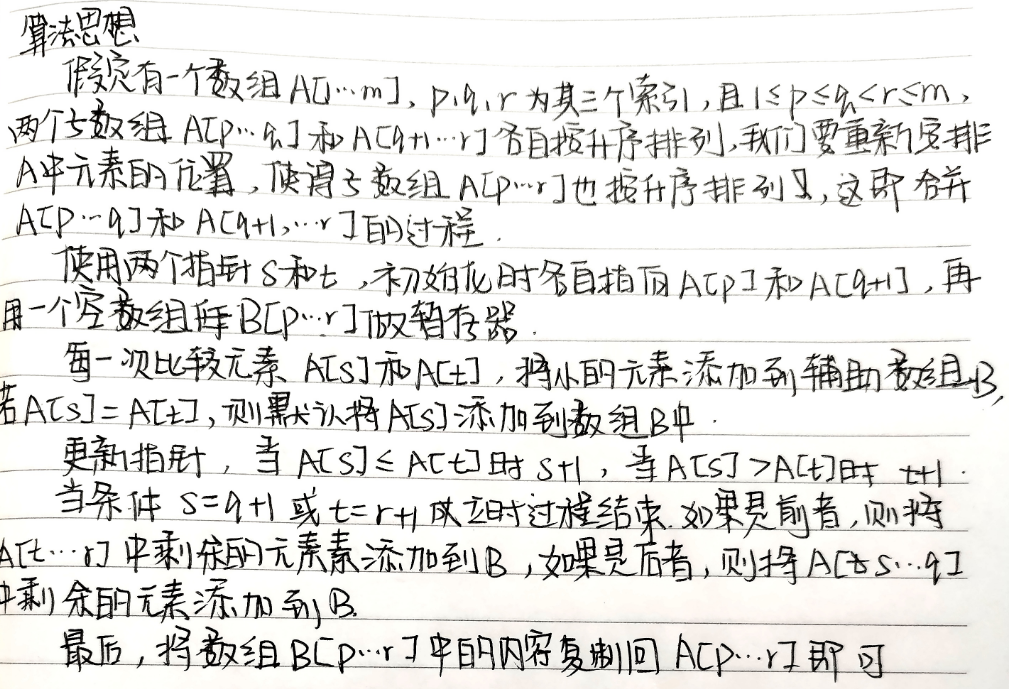 算法思想
假定有一个数组 A[1…m], p, q, r 为其三个索引, 且 1≤p≤q<r≤m,
两个子数组 A[p…q] 和 A[q+1…r] 各自按升序排列, 我们要重新安排
A中元素的位置, 使得子数组 A[p…r] 也按升序排列, 这即合并
A[p…q] 和 A[q+1,…r] 的过程.
使用两个指针 s 和 t, 初始化时各自指向 A[p] 和 A[q+1], 再
用一个空数组 B[p…r] 做暂存器.
每一次比较元素 A[s] 和 A[t], 将小的元素添加到辅助数组B,
若 A[s]=A[t], 则默认将A[s]添加到数组B中.
更新指针, 当 A[s]≤A[t]时 s+1, 当 A[s]>A[t]时 t+1.
当条件 s=q+1 或 t=r+1 成立时过程结束. 如果是前者, 则将
A[t…r] 中剩余的元素素添加到B, 如果是后者, 则将 A[s…q]
中剩余的元素添加到B.
最后, 将数组 B[p…r] 中的内容复制回 A[p…r] 即可